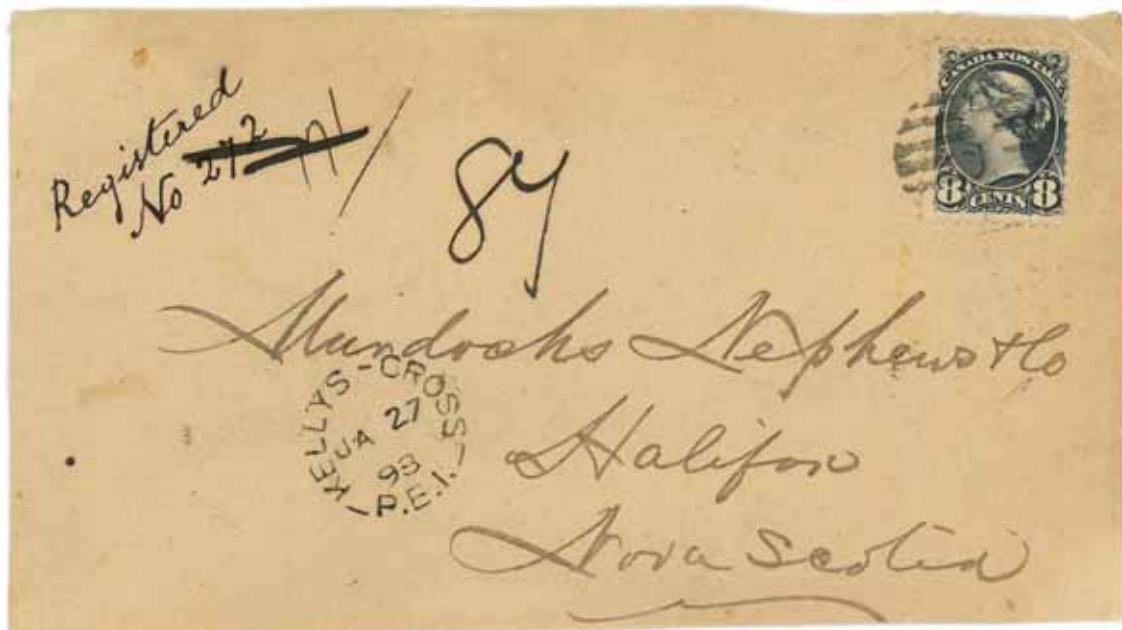 Registered
No 272
84
CANADA POSTAGE
8 CENTS 8
Murdochs Nephews & Co
Halifax
Nova Scotia
KELLYS-CROSS-
JA 27
93
P.E.I.